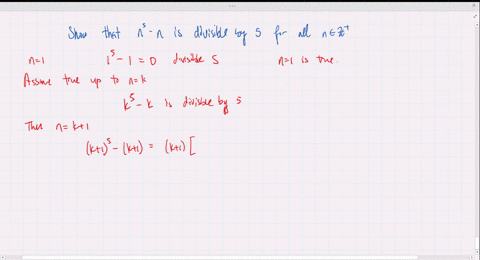 Show that n⁵-n is divisible by 5 for all n∈Z⁺
n=1 1⁵-1=0 divisible 5 n=1 is true.
Assume true up to n=k
k⁵-k is divisible by 5
Then n=k+1
(k+1)⁵-(k+1) = (k+1)[